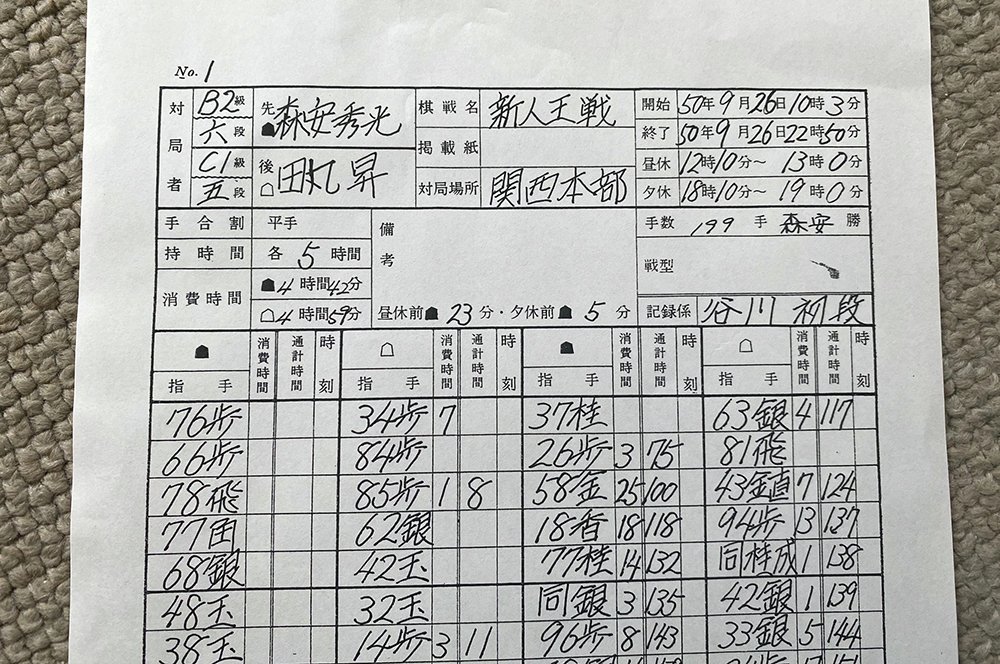 No. 1
対局者 B2級 六段 先☗森安秀光 棋戦名 新人王戦 開始 50年9月26日10時3分
掲載紙 終了 50年9月26日22時50分
C1級 五段 後☖田丸昇 対局場所 関西本部 昼休 12時10分〜13時0分
夕休 18時10分〜19時0分
手合割 平手 備考 手数 199手 森安勝
持時間 各5時間 戦型
消費時間 ☗4時間42分
☖4時間59分 昼休前☗23分・夕休前☗5分 記録係 谷川初段
☗指手 消費時間 通計時間 時刻 ☖指手 消費時間 通計時間 時刻 ☗指手 消費時間 通計時間 時刻 ☖指手 消費時間 通計時間 時刻
76歩 34歩 7 37桂 63銀 4 117
66歩 84歩 26歩 3 75 81飛
78飛 85歩 1 8 58金 25 100 43金直 7 124
77角 62銀 18香 18 118 94歩 13 137
68銀 42玉 77桂 14 132 同桂成 1 138
48玉 32玉 同銀 3 135 42銀 1 139
38玉 14歩 3 11 96歩 8 143 33銀 5 144